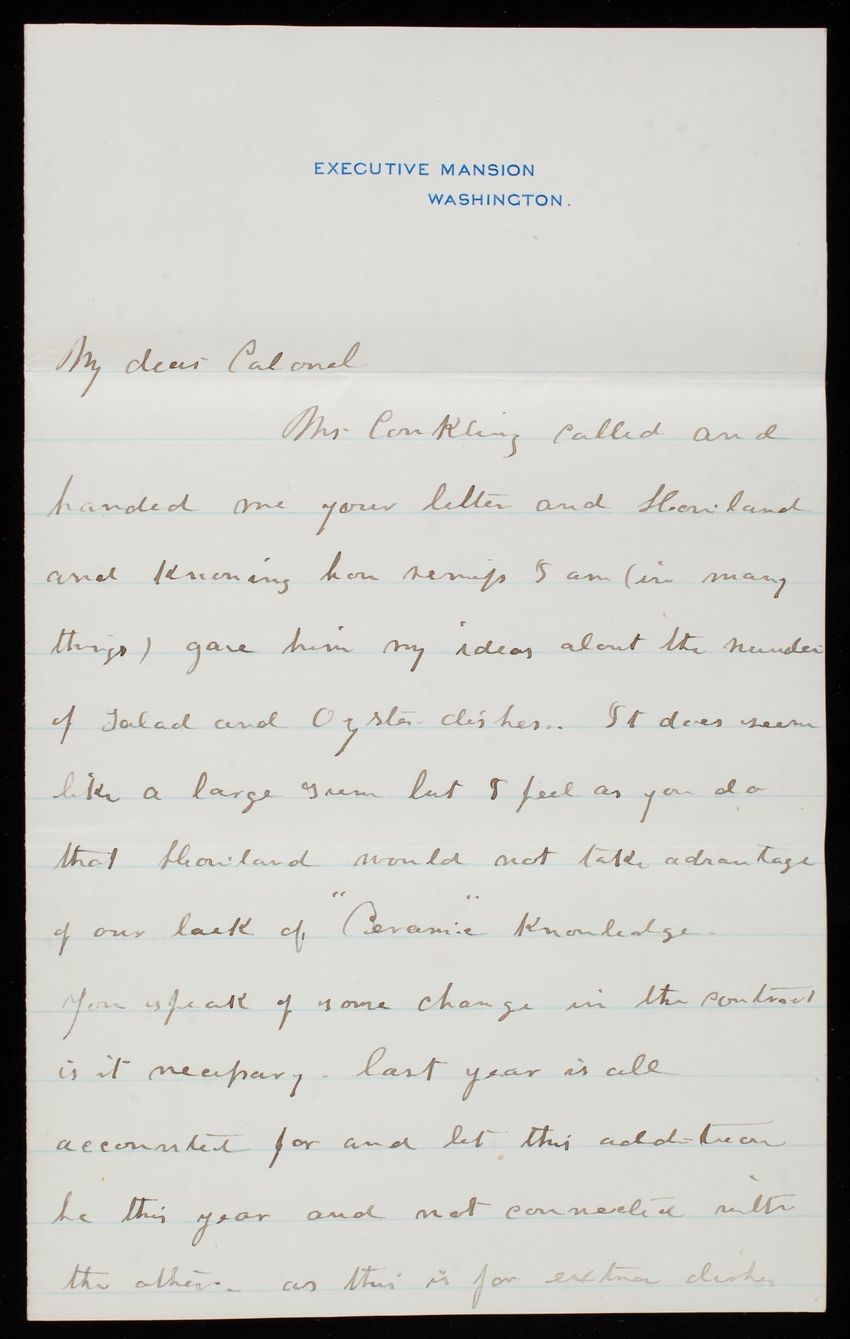 EXECUTIVE MANSION
WASHINGTON.
My dear Colonel
Mr Conkling called and
handed me your letter and
and Knowing how I am (in many
things) gave him my ideas about the number
of Salad and Oyster dishes.. It does seem
like a large sum but I feel as you do
that would not take advantage
of our lack of "Ceramic" Knowledge.
You speak of some change in the contract
is it necessary - last year is all
accounted for and let this addition
be this year and not connected with
the other - as this is for extra dishes